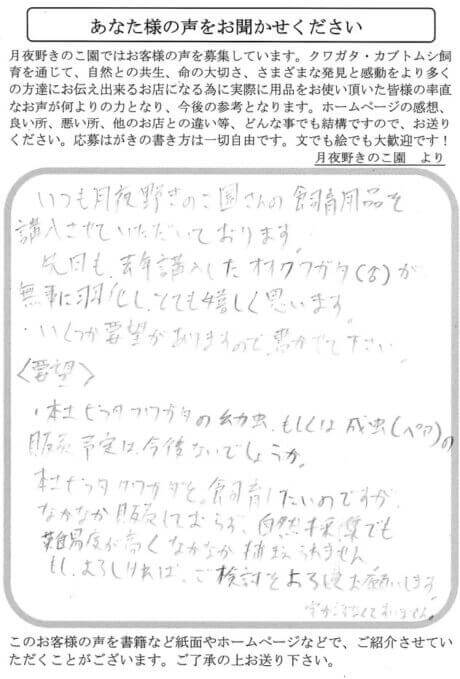 あなた様の声をお聞かせください
月夜野きのこ園ではお客様の声を募集しています。クワガタ・カブトムシ飼
育を通じて、自然との共生、命の大切さ、さまざまな発見と感動をより多く
の方達にお伝え出来るお店になる為に実際に用品をお使い頂いた皆様の率直
なお声が何よりの力となり、今後の参考となります。ホームページの感想、
良い所、悪い所、他のお店との違い等、どんな事でも結構ですので、お送り
ください。応募はがきの書き方は一切自由です。文でも絵でも大歓迎です！
月夜野きのこ園 より
いつも月夜野きのこ園さんの飼育用品を
購入させていただいております。
先日も、去年購入したオオクワガタ(♂)が
無事に羽化し、とても嬉しく思います。
・いくつか要望がありますので、書かせて下さい。
〈要望〉
・本土ヒラタクワガタの幼虫、もしくは成虫(ペア)の
販売予定は、今後ないでしょうか。
本土ヒラタクワガタを、飼育したいのですが、
なかなか販売しておらず、自然採集でも
難易度が高くなかなか捕まえられません
もし、よろしければ、ご検討をよろしくお願いします。
字がきたなくてすいません。
このお客様の声を書籍など紙面やホームページなどで、ご紹介させてい
ただくことがございます。ご了承の上お送り下さい。